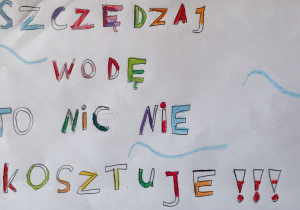 SZCZĘDZAJ
WODĘ
TO NIC NIE
KOSZTUJE!!!